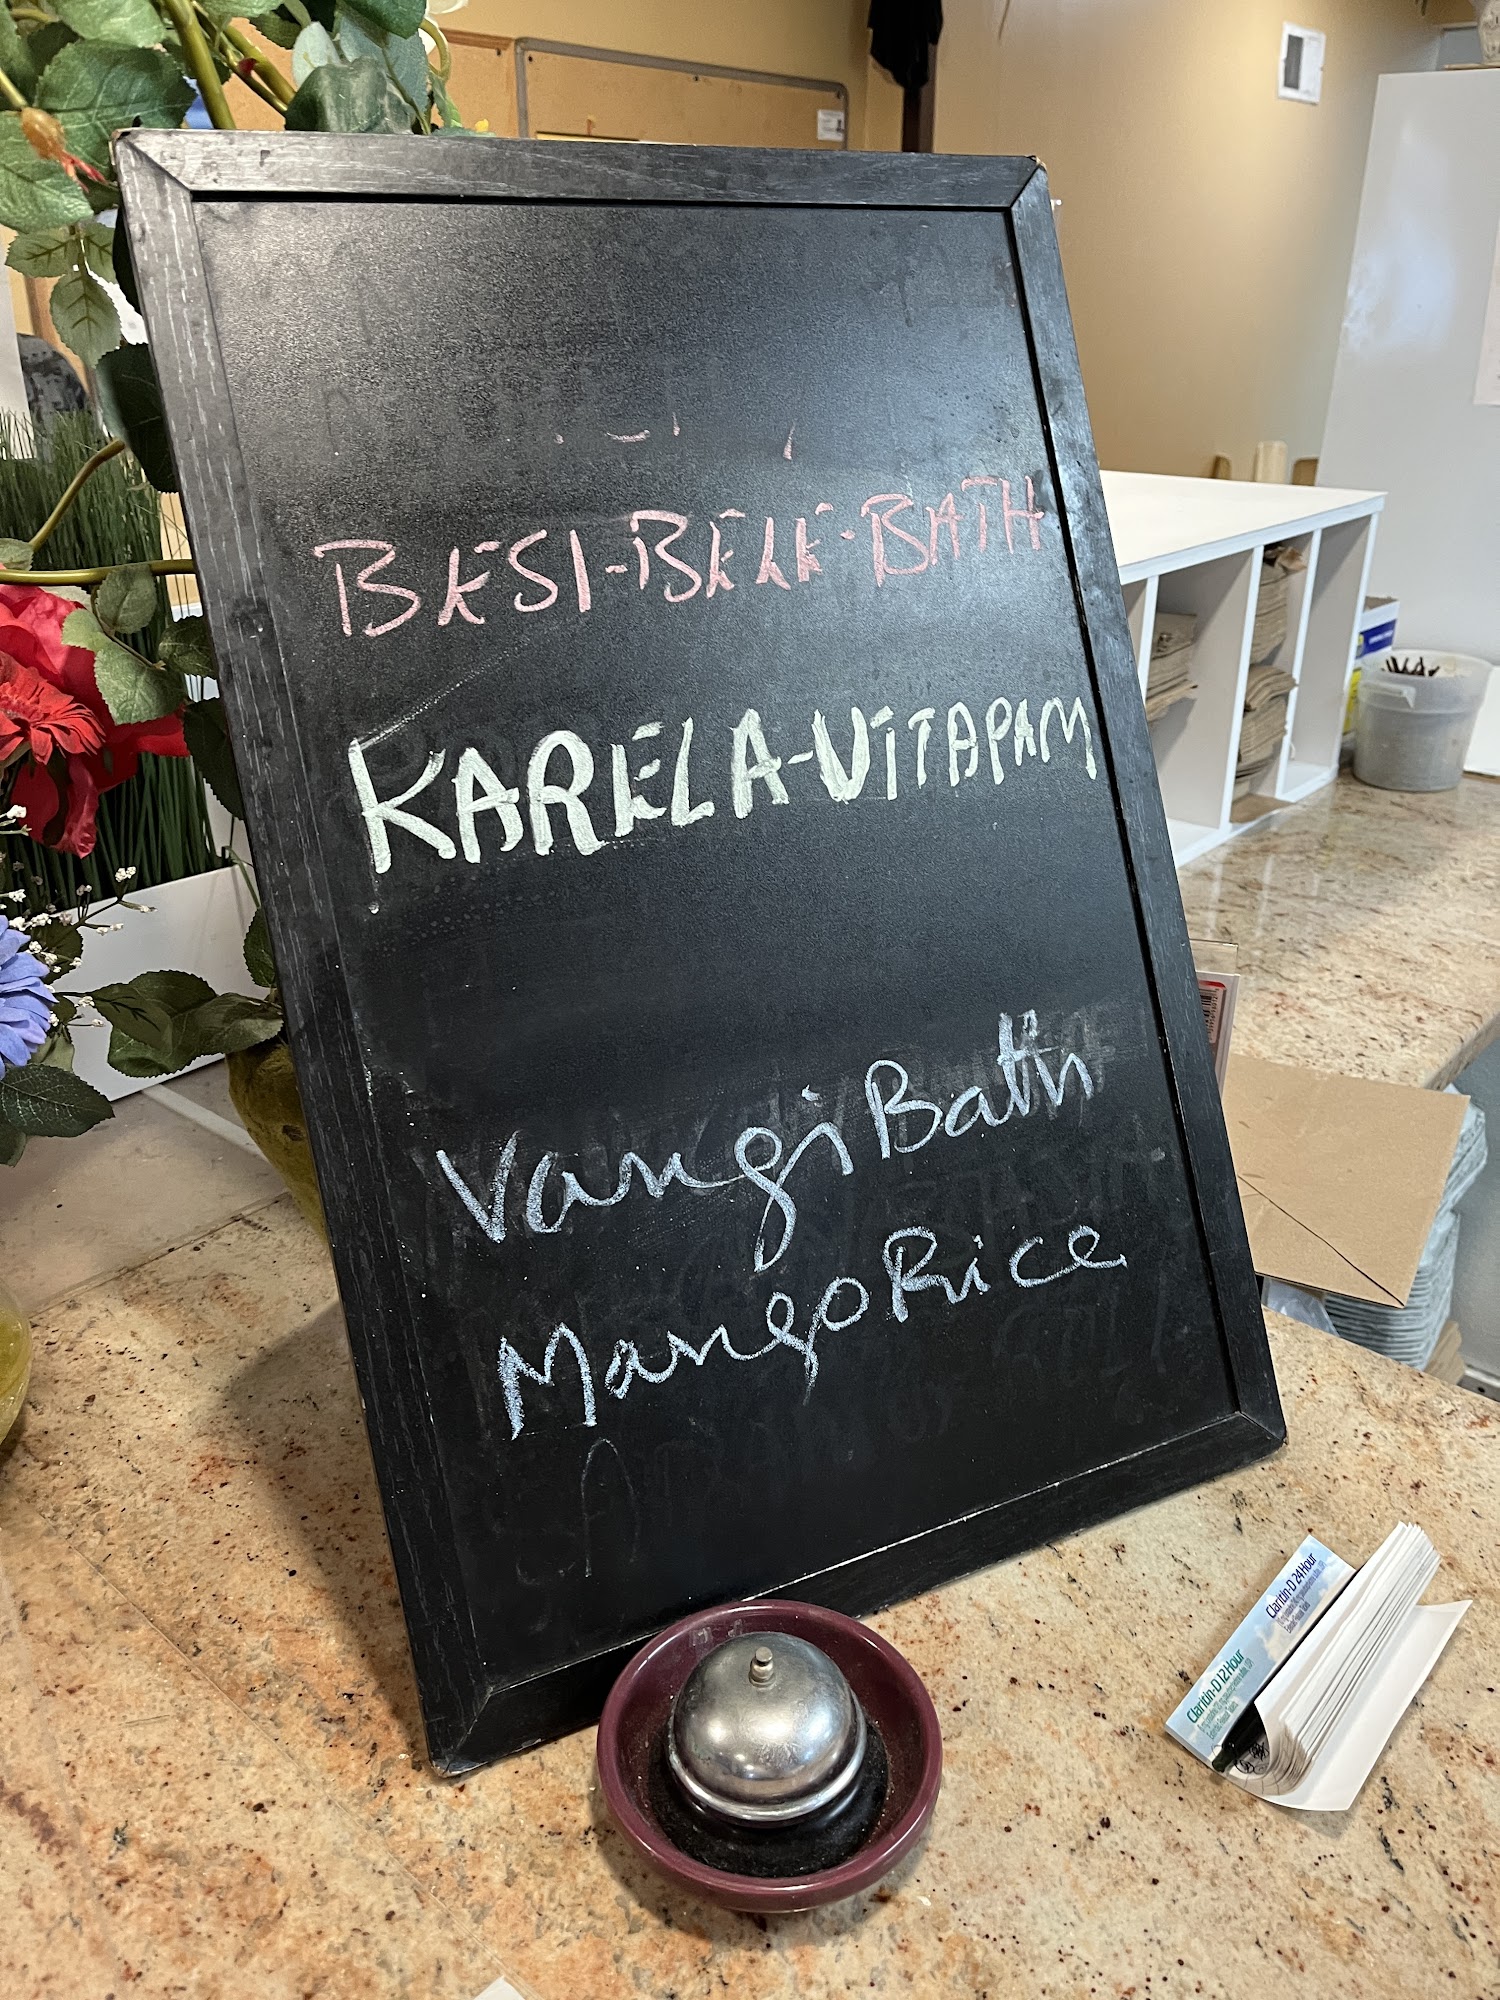 BESI-BELE-BATH
KARELA-VITAPAM
Vangi Bath
Mango Rice
Claritin-D 24 Hour
Claritin-D 12 Hour